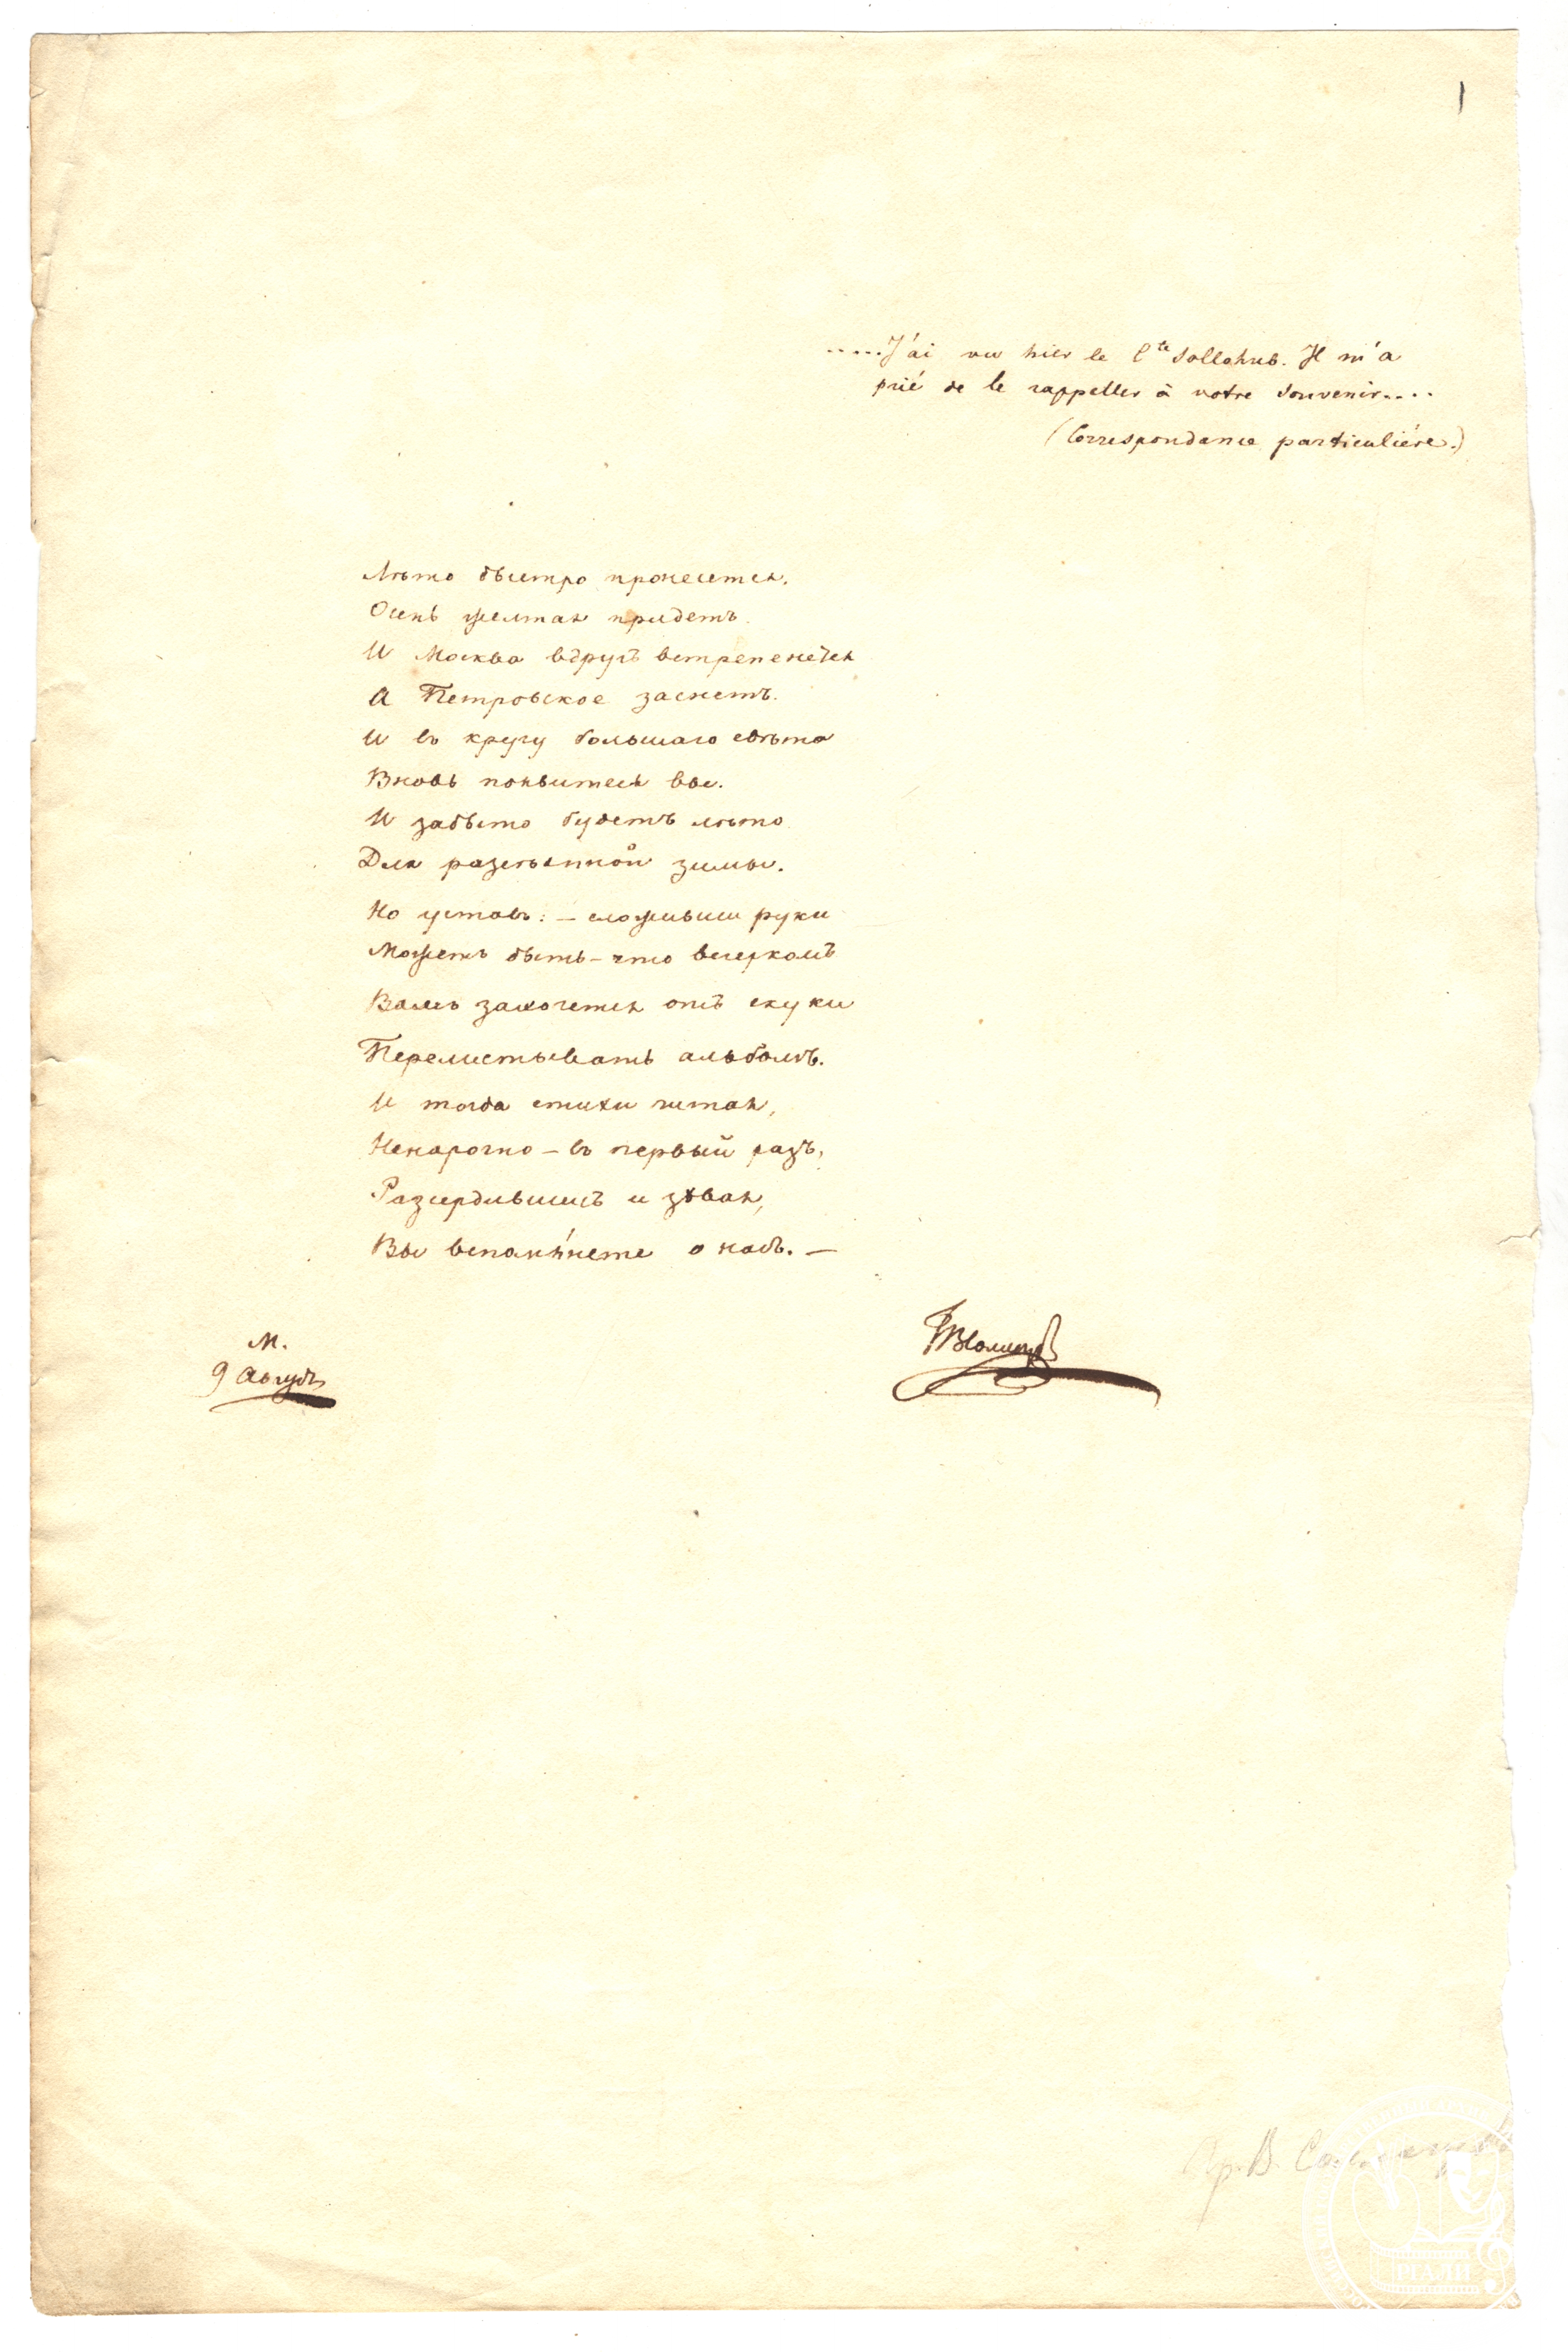 1
.....J'ai vu hier le Cte Sollohub. Il m'a
prié de le rappeller à votre souvenir....
(Correspondance particulière.)
Лѣто быстро пронесется,
Осень желтая придетъ
И Москва вдругъ встрепенется
А Петровское заснетъ.
И въ кругу большаго свѣта
Вновь появитесь вы.
И забыто будетъ лѣто
Для разсѣянной зимы.
Но уставъ: – сложивши руки
Можетъ быть – что вечеркомъ
Вамъ захочется отъ скуки
Перелистывать альбомъ.
И тогда стихи читая,
Ненарочно – въ первый разъ,
Разсердившись и зѣвая,
Вы вспомяните о насъ. –
М.
9 Августъ
Гр. В.
РГАЛИ